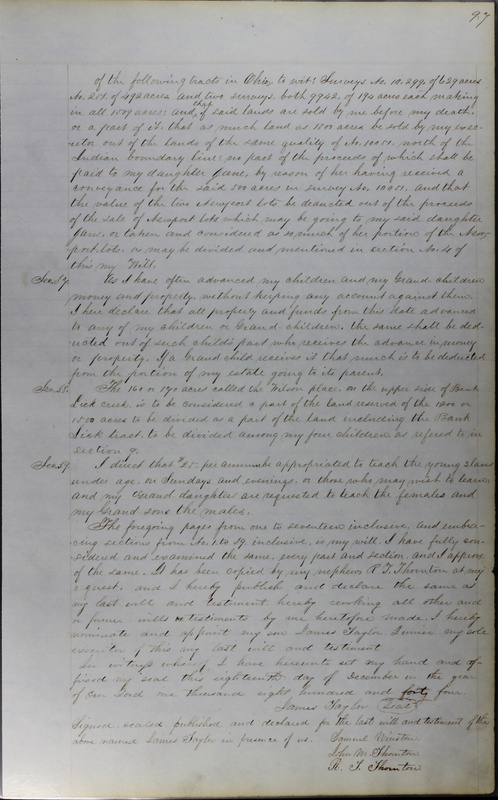 97
of the following tracts in Ohio, to wit: Surveys No. 10.299, of 629 acres
No. 201. of 492 acres and two surveys, both 9942, of 194 acres each making
in all 1509 acres: and, if that said lands are sold by me before my death,
or a part of it, that as much land as 1500 acres be sold by my exec-
cutor out of the lands of the same quality of No. 10001. north of the
Indian boundary line: no part of the proceeds of which shall be
paid to my daughter Jane, by reason of her having received a
conveyance for the said 500 acres in survey No. 10001. and that
the value of the two Newport lots be deducted out of the proceeds
of the sale of Newport lots which may be going to my said daughter
Jane, or taken and considered as so much of her portion of the New-
port lots, as may be divided and mentioned in section No. 4 of
this my Will.
Sec. 57. As I have often advanced my children and my Grand children
money and property, without keeping any account against them.
I here declare that all property and funds from this date advanced
to any of my children or Grand children, the same shall be ded-
ucted out of such child's part who receives the advance in money
or property. If a Grand child receives it that much is to be deducted
from the portion of my estate going to its parent.
Sec. 58. The 160 or 170 acres called the Wilson place, on the upper side of Bank
Lick creek, is to be considered a part of the land reserved of the 1200 or
1500 acres to be divided as a part of the land including the Bank
Lick tract, to be divided among my four children as refered to in
section 9.
Sec. 59. I direct that $25. per annum be appropriated to teach the young slaves
under age, on Sundays and evenings, or those who may wish to learn
and my Grand daughters are requested to teach the females and
my Grand sons the males.
The foregoing pages from one to seventeen inclusive, and embra-
cing sections from No. 1, to 59. inclusive, is my will. I have fully con-
sidered and examined the same, every part and section, and I approve
of the same. It has been copied by my nephew R. T. Thornton at my
request, and I hereby publish and declare the same as
my last will and testament hereby revoking all other and
former wills or testiments by me heretofore made. I hereby
nominate and appoint my son James Taylor Junior my sole
executor of this my last will and testament
In witness whereof, I have hereunto set my hand and af-
fixed my seal this eighteenth day of December in the year
of our Lord one thousand eight hundred and forty four.
James Taylor Seal
Signed, sealed published and declared for the last will and testiment of the
above named James Taylor in presence of us. Samuel Winston
John M. Thornton
R. T. Thornton